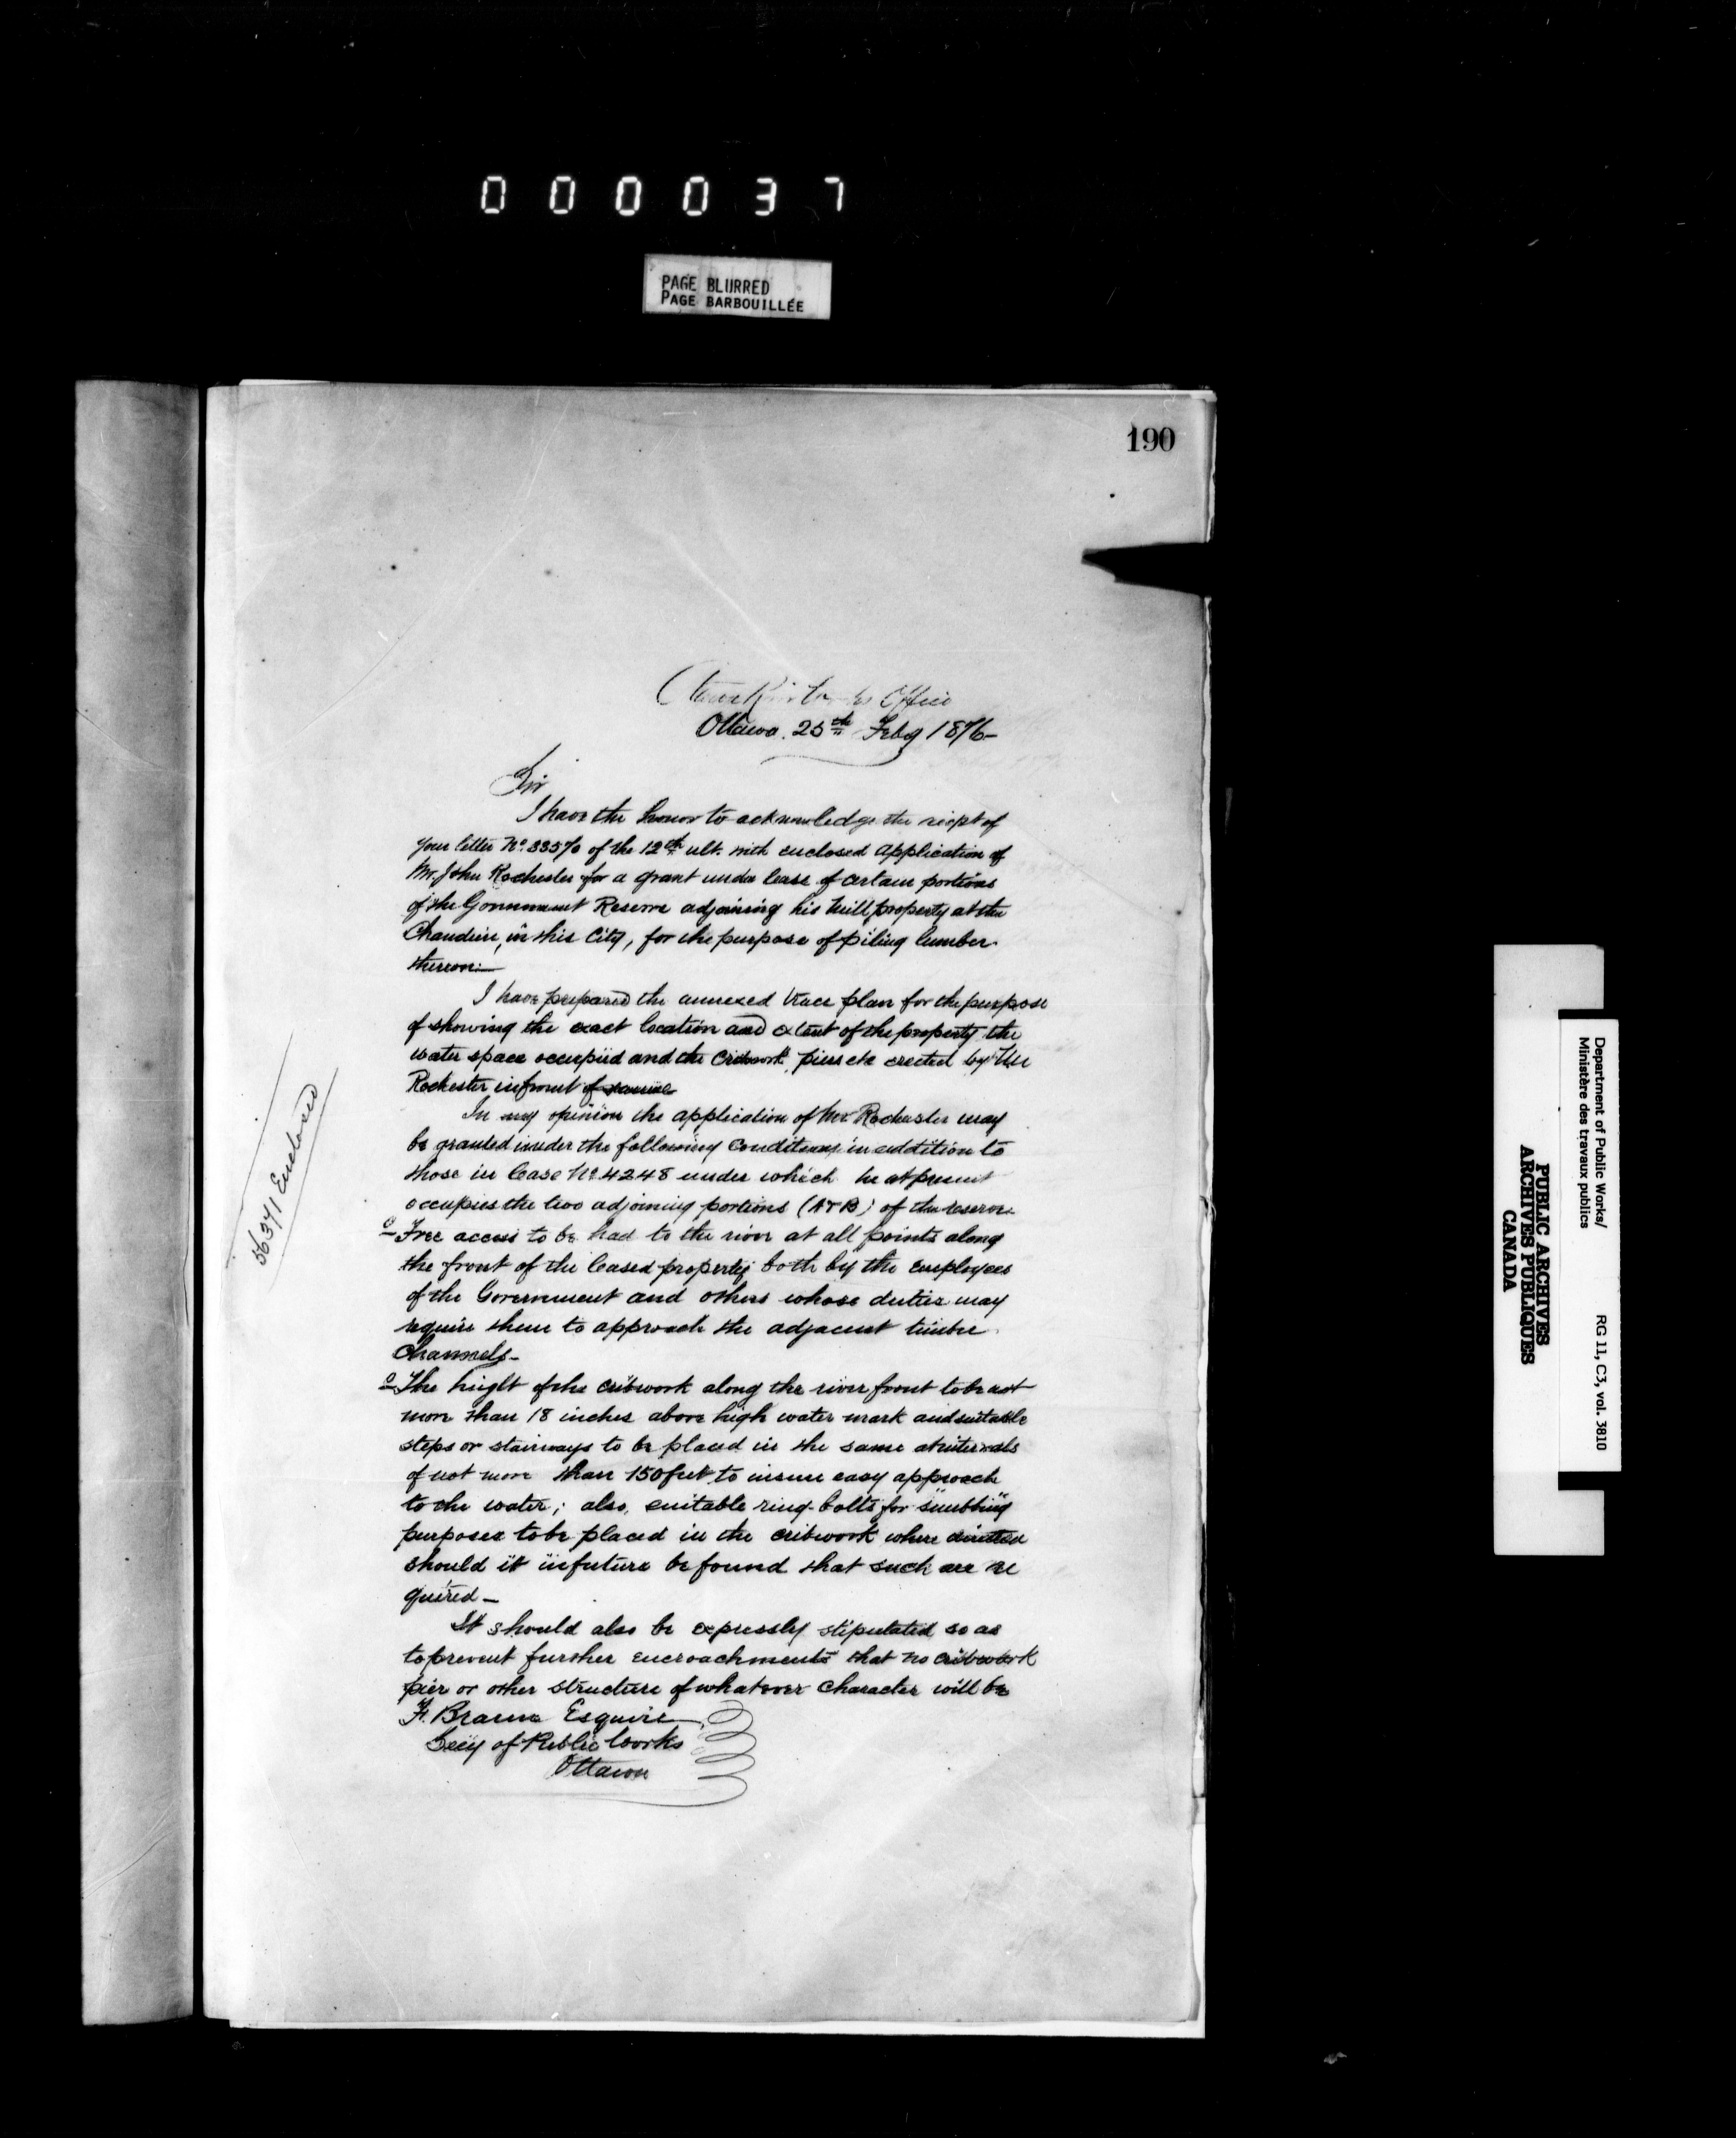 000037
PAGE BLURRED
PAGE BARBOUILLÉE
190
Office
Ottawa. 25th Feby 1876-
Sir
I have the honor to acknowledge the reciept of
your letter No. 33570 of the 12th ult. with enclosed application of
Mr. John Rochester for a grant under lease of certain portions
of the Government Reserve adjoining his Mill property at the
Chaudiere, in this City, for the purpose of piling lumber
thereon:—
I have prepared the annexed trace plan for the purpose
of showing the exact location and extent of the property the
water space occupied and the Cribwork, piers etc erected by Mr
Rochester in front of same
In my opinion the application of Mr Rochester may
be granted under the following Conditions in addition to
those in lease No. 4248 under which he at present
occupies the two adjoining portions (A & B) of the reserve
Free access to be had to the river at all points along
the front of the leased property both by the employees
of the Government and others whose duties may
require them to approach the adjacent timber
Channels-
The hieght of the cribwork along the river front to be not
more than 18 inches above high water mark and suitable
steps or stairways to be placed in the same at intervals
of not more than 150 feet to insure easy approach
to the water; also, suitable ring-bolts for "snubbing"
purposes to be placed in the cribwork where directed
should it in future be found that such are re
quired—
It should also be expressly stipulated so as
to prevent further encroachments that no cribwork
pier or other structure of whatever Character will be
F. Braun Esquire
Secy of Public Works
Ottawa
56371 Enclosed
Department of Public Works/
Ministère des travaux publics
RG 11, C3, vol. 3810
PUBLIC ARCHIVES
ARCHIVES PUBLIQUES
CANADA